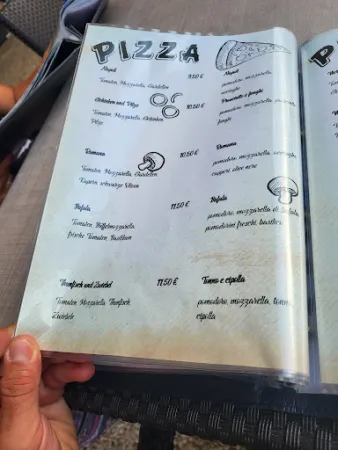 PIZZA
Napoli 9.50 €
Tomaten, Mozzarella, Sardellen
Schinken und Pilze 10.50 €
Tomaten, Mozzarella, Schinken
Pilze
Romana 10.50 €
Tomaten, Mozzarella, Sardellen
Kapern, schwarze Oliven
Bufala 11.50 €
Tomaten, Büffelmozzarella
frische Tomaten, Basilikum
Thunfisch und Zwiebel 11.50 €
Tomaten, Mozzarella, Thunfisch
Zwiebeln
Napoli
pomodoro, mozzarella,
Prosciutto e funghi
pomodoro, mozzarella,
funghi
Romana
pomodoro, mozzarella, acciughe,
capperi, olive nere
Bufala
pomodoro, mozzarella di bufala,
pomodorini freschi, basilico
Tonno e cipolla
pomodoro, mozzarella, tonno,
cipolla
P